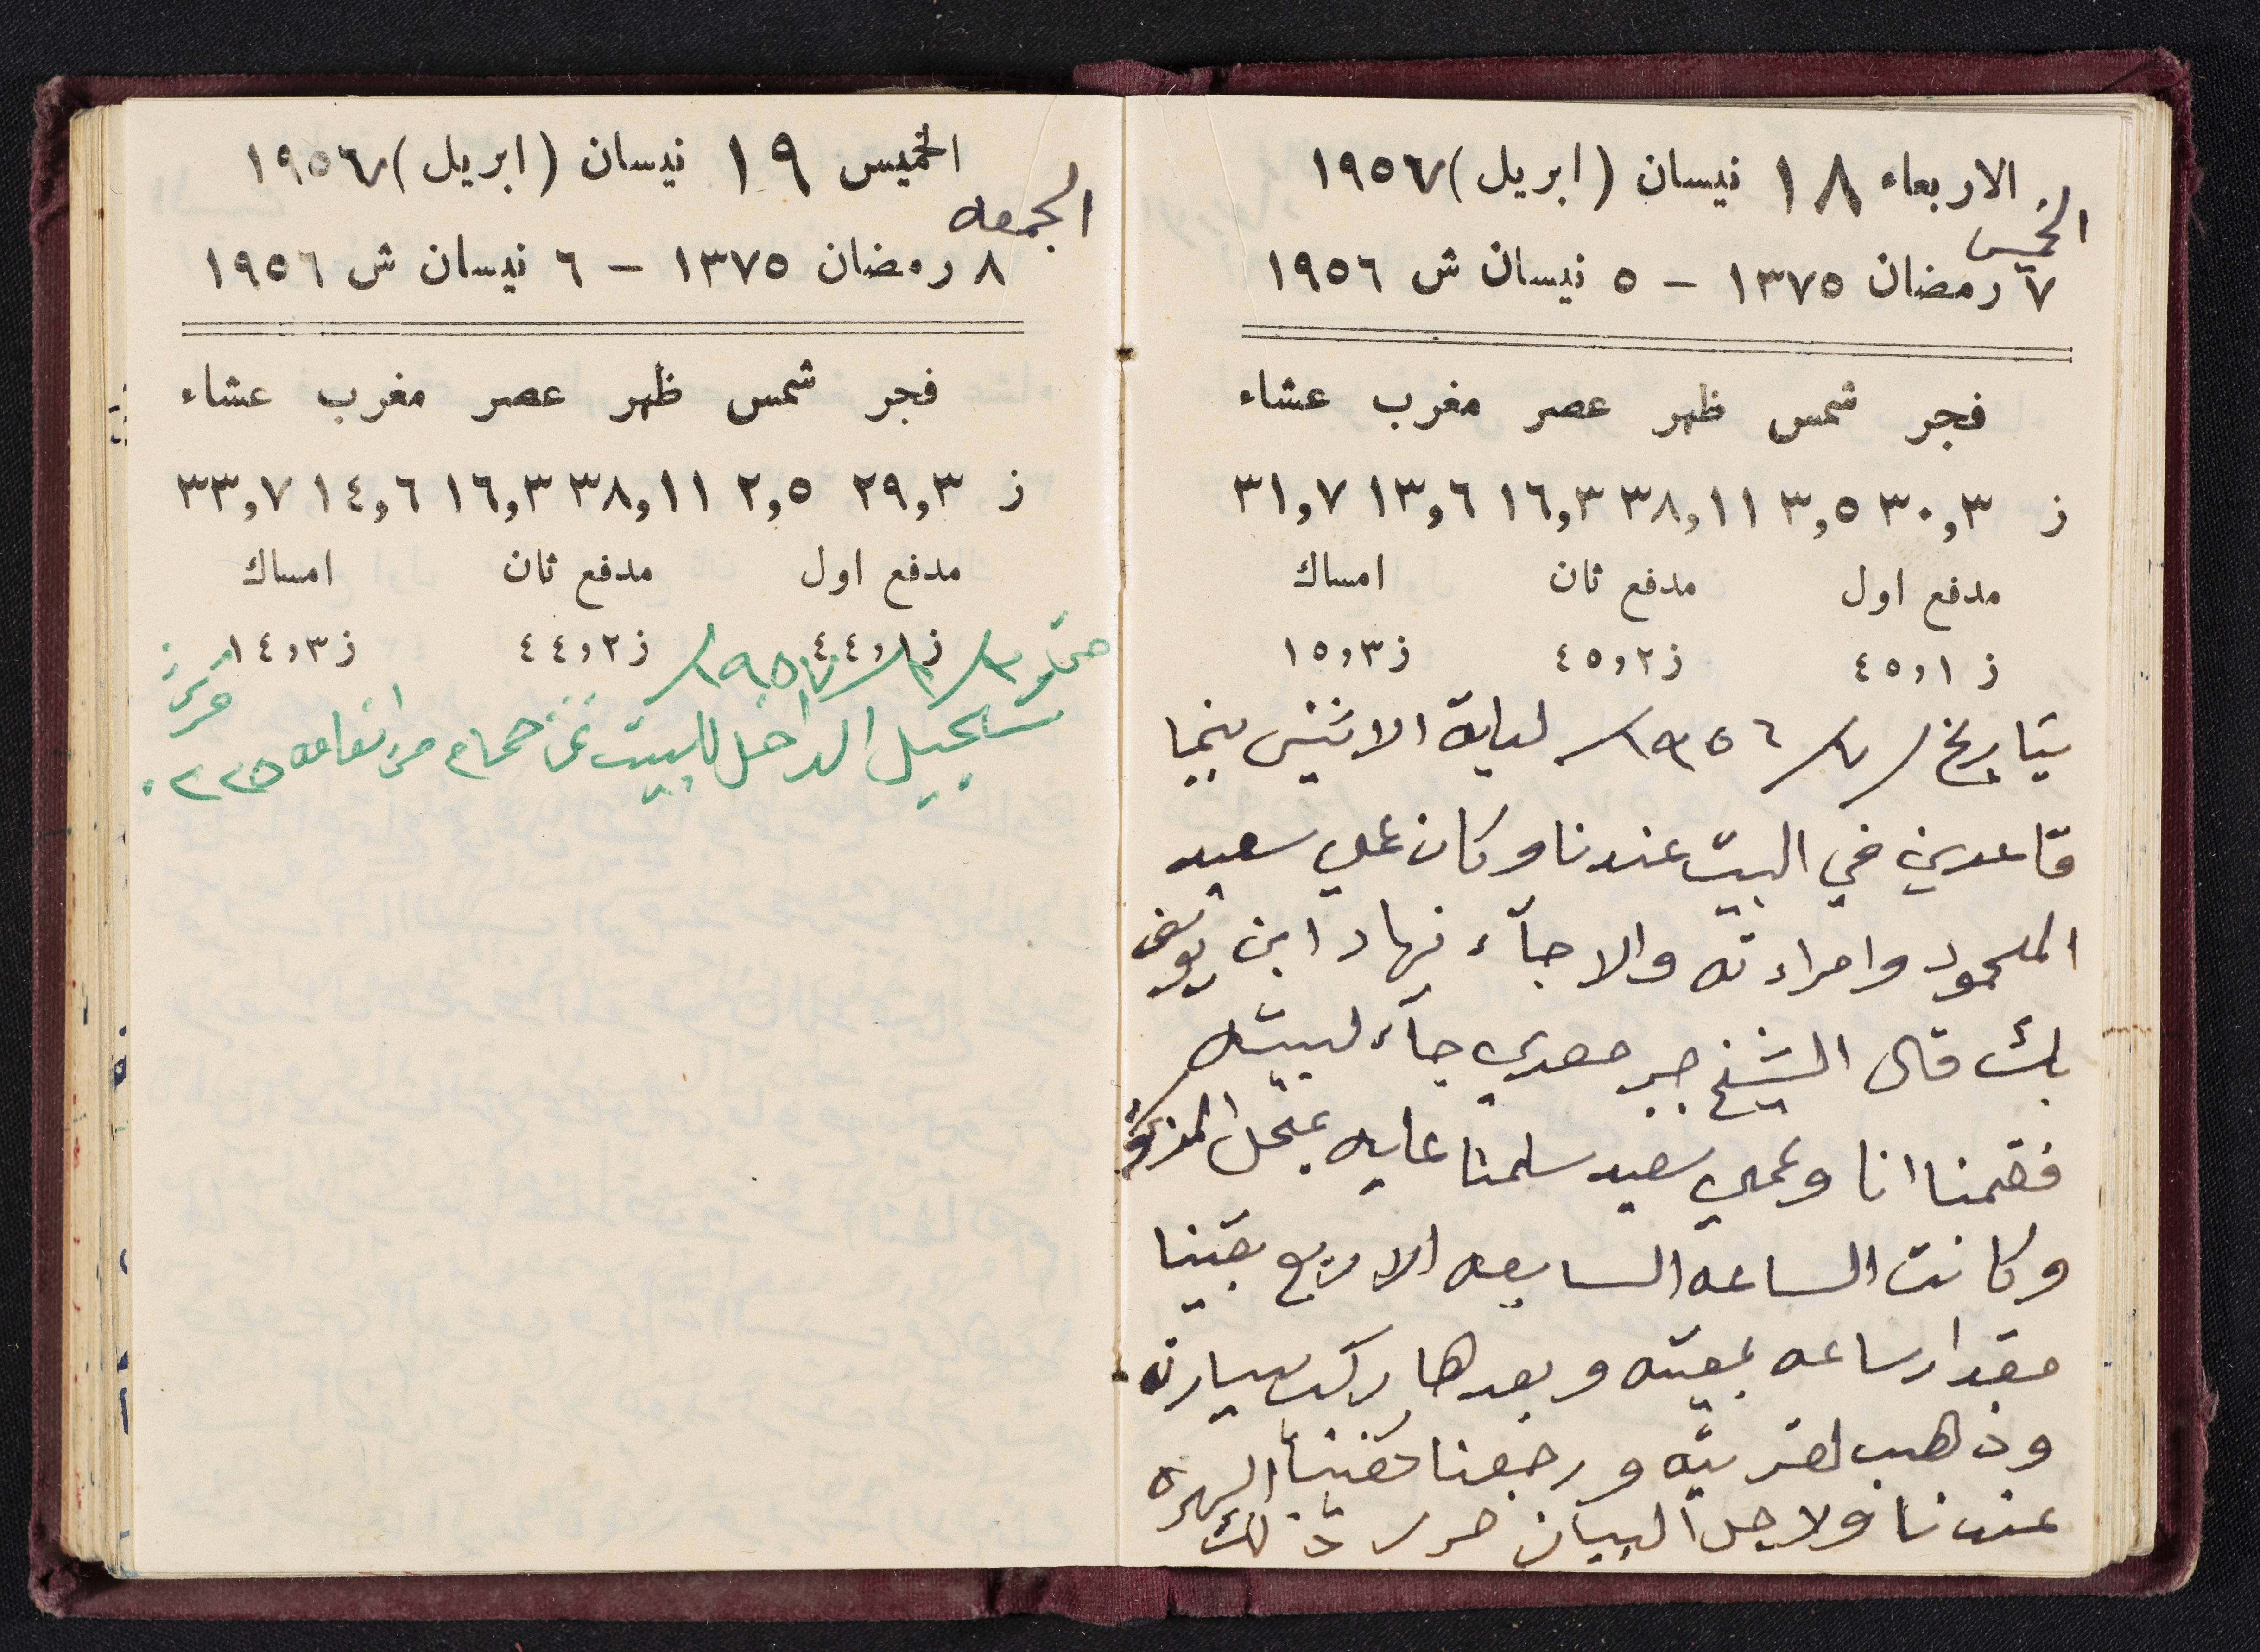 الاربعاء ١٨ نيسان (ابريل) ١٩٥٦
الخميس
٧ رمضان ١٣٧٥ - ٥ نيسان ش ١٩٥٦
فجر شمس ظهر عصر مغرب عشاء
ز ٣٠,٣ ٣,٥ ٣٨,١١ ١٦,٣ ١٣,٦ ٣١,٧
مدفع اول مدفع ثان امساك
ز ٤٥,١ ز ٤٥,٢ ز ١٥,٣
بتاريخ ١٩٥٦ ليلة الاثنين بينما
قاعدين في البيت عندنا وكان عمي سعيد
المحمود وامراءته والا جآء نهاد ابن يوسف
بك قال الشيخ جبر معدي جآء لبيته
فقمنا انا وعمي سعيد سلمنا عليه بمحل المذكور
وكانت الساعه السابعه الا ربع بقينا
مقدار ساعه بمعيته وبعدها ركب سيارته
وذهب لقريته ورجعنا كفينا السهره
عندنا ولاجل البيان حرر ذلك
الخميس ١٩ نيسان (ابريل) ١٩٥٦
الجمعه
٨ رمضان ١٣٧٥ - ٦ نيسان ش ١٩٥٦
فجر شمس ظهر عصر مغرب عشاء
ز ٢٩,٣ ٢,٥ ٣٨,١١ ١٦,٣ ١٤,٦ ٣٣,٧
مدفع اول مدفع ثان امساك
ز ٤٤,١ ز ٤٤,٢ ز ١٤,٣
١٩٥٧
تسجيل الداخل للبيت